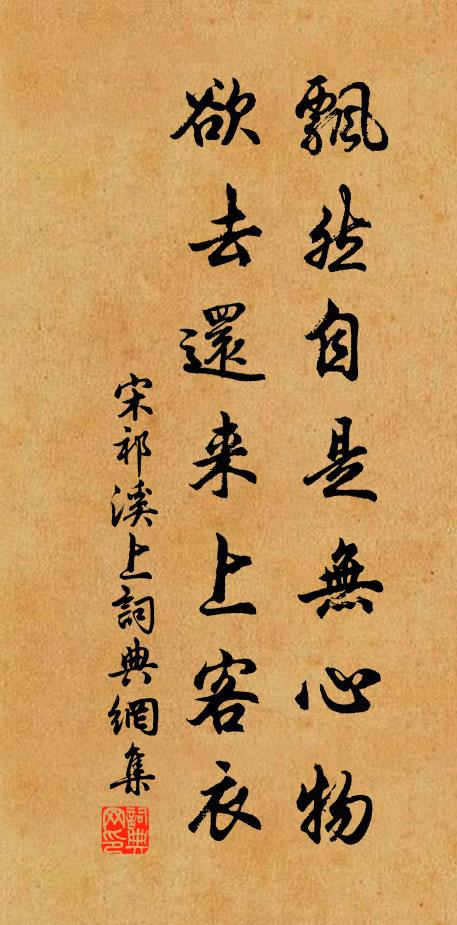 飄然自是無心物
欲去還來上客衣
宋祁溪上詞典網集
詞典网印